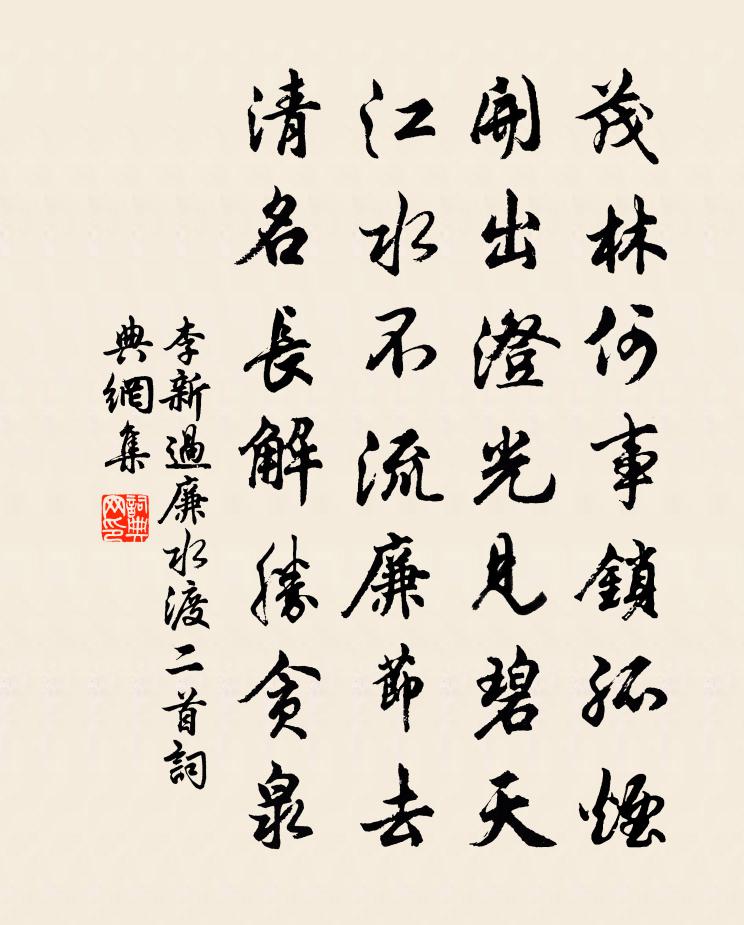 茂林何事鎖孤煙
開出澄光見碧天
江水不流廉節去
清名長解勝貪泉
李新過廉水渡二首詞
典網集
詞典
网印